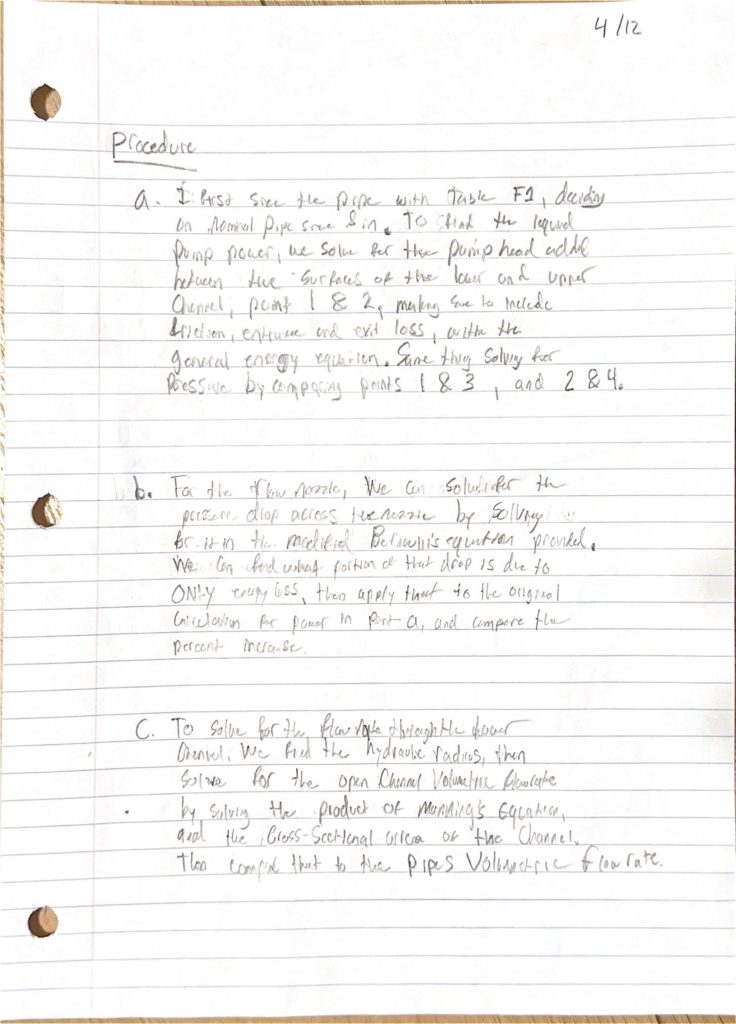 4/12
Procedure
a. I first size the pipe with Table F1, deciding
on Nominal pipe size 8 in. To find the required
pump power, we solve for the pump head added
between the surfaces of the lower and upper
Channel, point 1 & 2, making sure to include
friction, entrance and exit loss, with the
general energy equation. Same thing solving for
Pressure by comparing points 1 & 3, and 2 & 4.
b. For the flow nozzle, we can solve for the
pressure drop across the nozzle by solving
for it in the modified Bernoulli's equation provided.
We can find what portion of that drop is due to
ONLY energy loss, then apply that to the original
calculation for power in part a, and compare the
percent increase.
C. To solve for the flow rate through the lower
Channel. We find the hydraulic radius, then
solve for the open Channel Volumetric flowrate
by solving the product of Manning's Equation,
and the Cross-Sectional area of the Channel.
Then compare that to the pipes Volumetric flow rate.